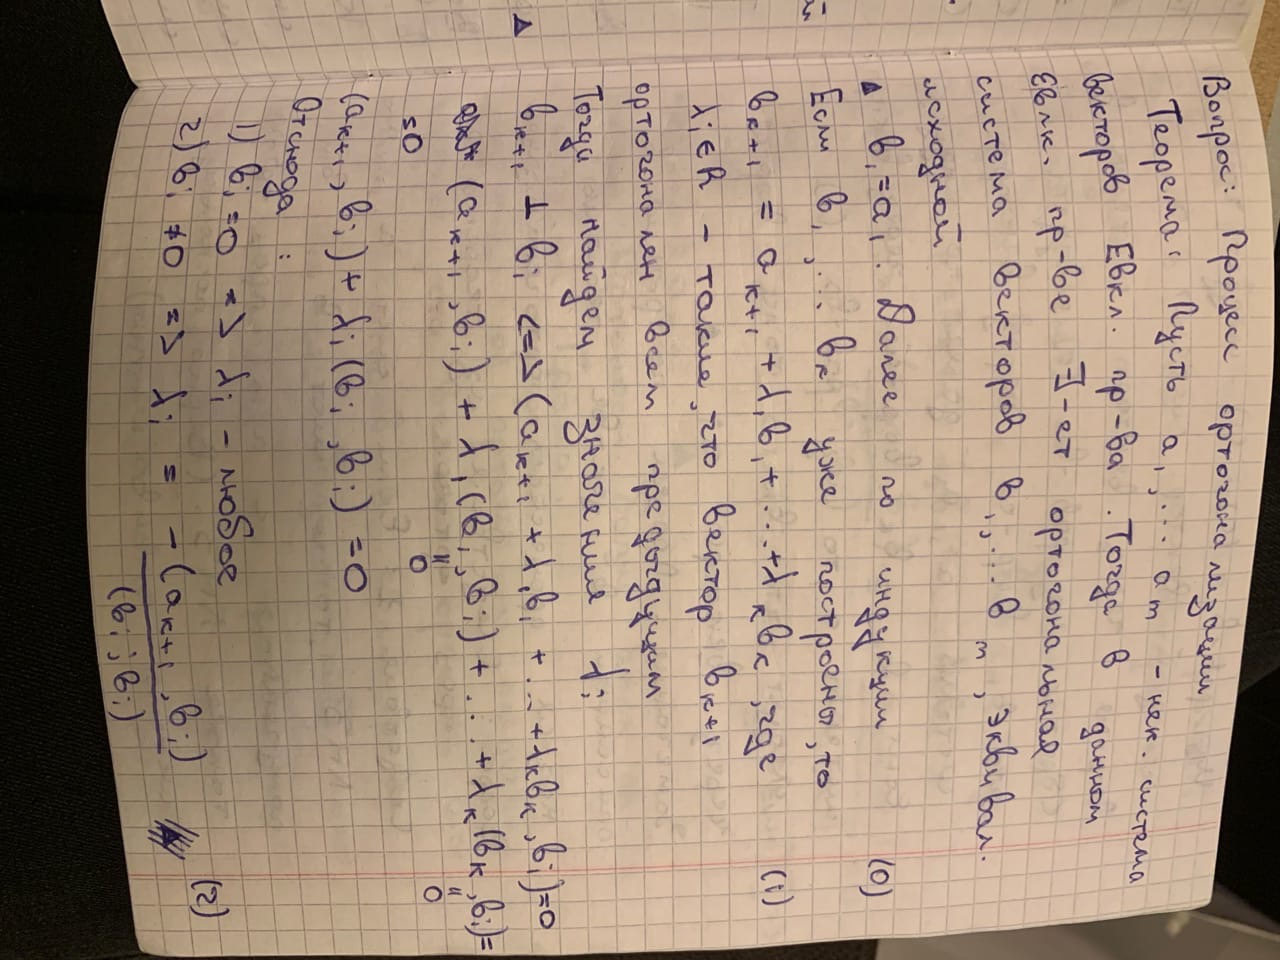 Вопрос: Процесс ортогонализации
Теорема: Пусть a₁, ... am - нек. система
векторов Евкл. пр-ва. Тогда в данном
Евлк. пр-ве ∃-ет ортогональная
система векторов в₁, ... вm, эквивал.
исходной
▲ b₁ = a₁. Далее по индукции (0)
Если b₁, ... bк уже построены, то
bк+1 = aк+1 + λ₁b₁ + ... + λкbк, где (1)
λi ∈ R - такие, что вектор bк+1
ортогонален всем предыдущим
Тогда найдем значения λi
bк+1 ⊥ bi <=> (aк+1 + λ₁b₁ + ... + λкbк, bi) = 0
(aк+1, bi) + λ₁(b₁, bi) + ... + λк(bк, bi) =
= 0
" 0
" 0
(aк+1, bi) + λi(bi, bi) = 0
Отсюда:
1) bi = 0 => λi - любое
2) bi ≠ 0 => λi = - (aк+1, bi) / (bi, bi) (2)
▲